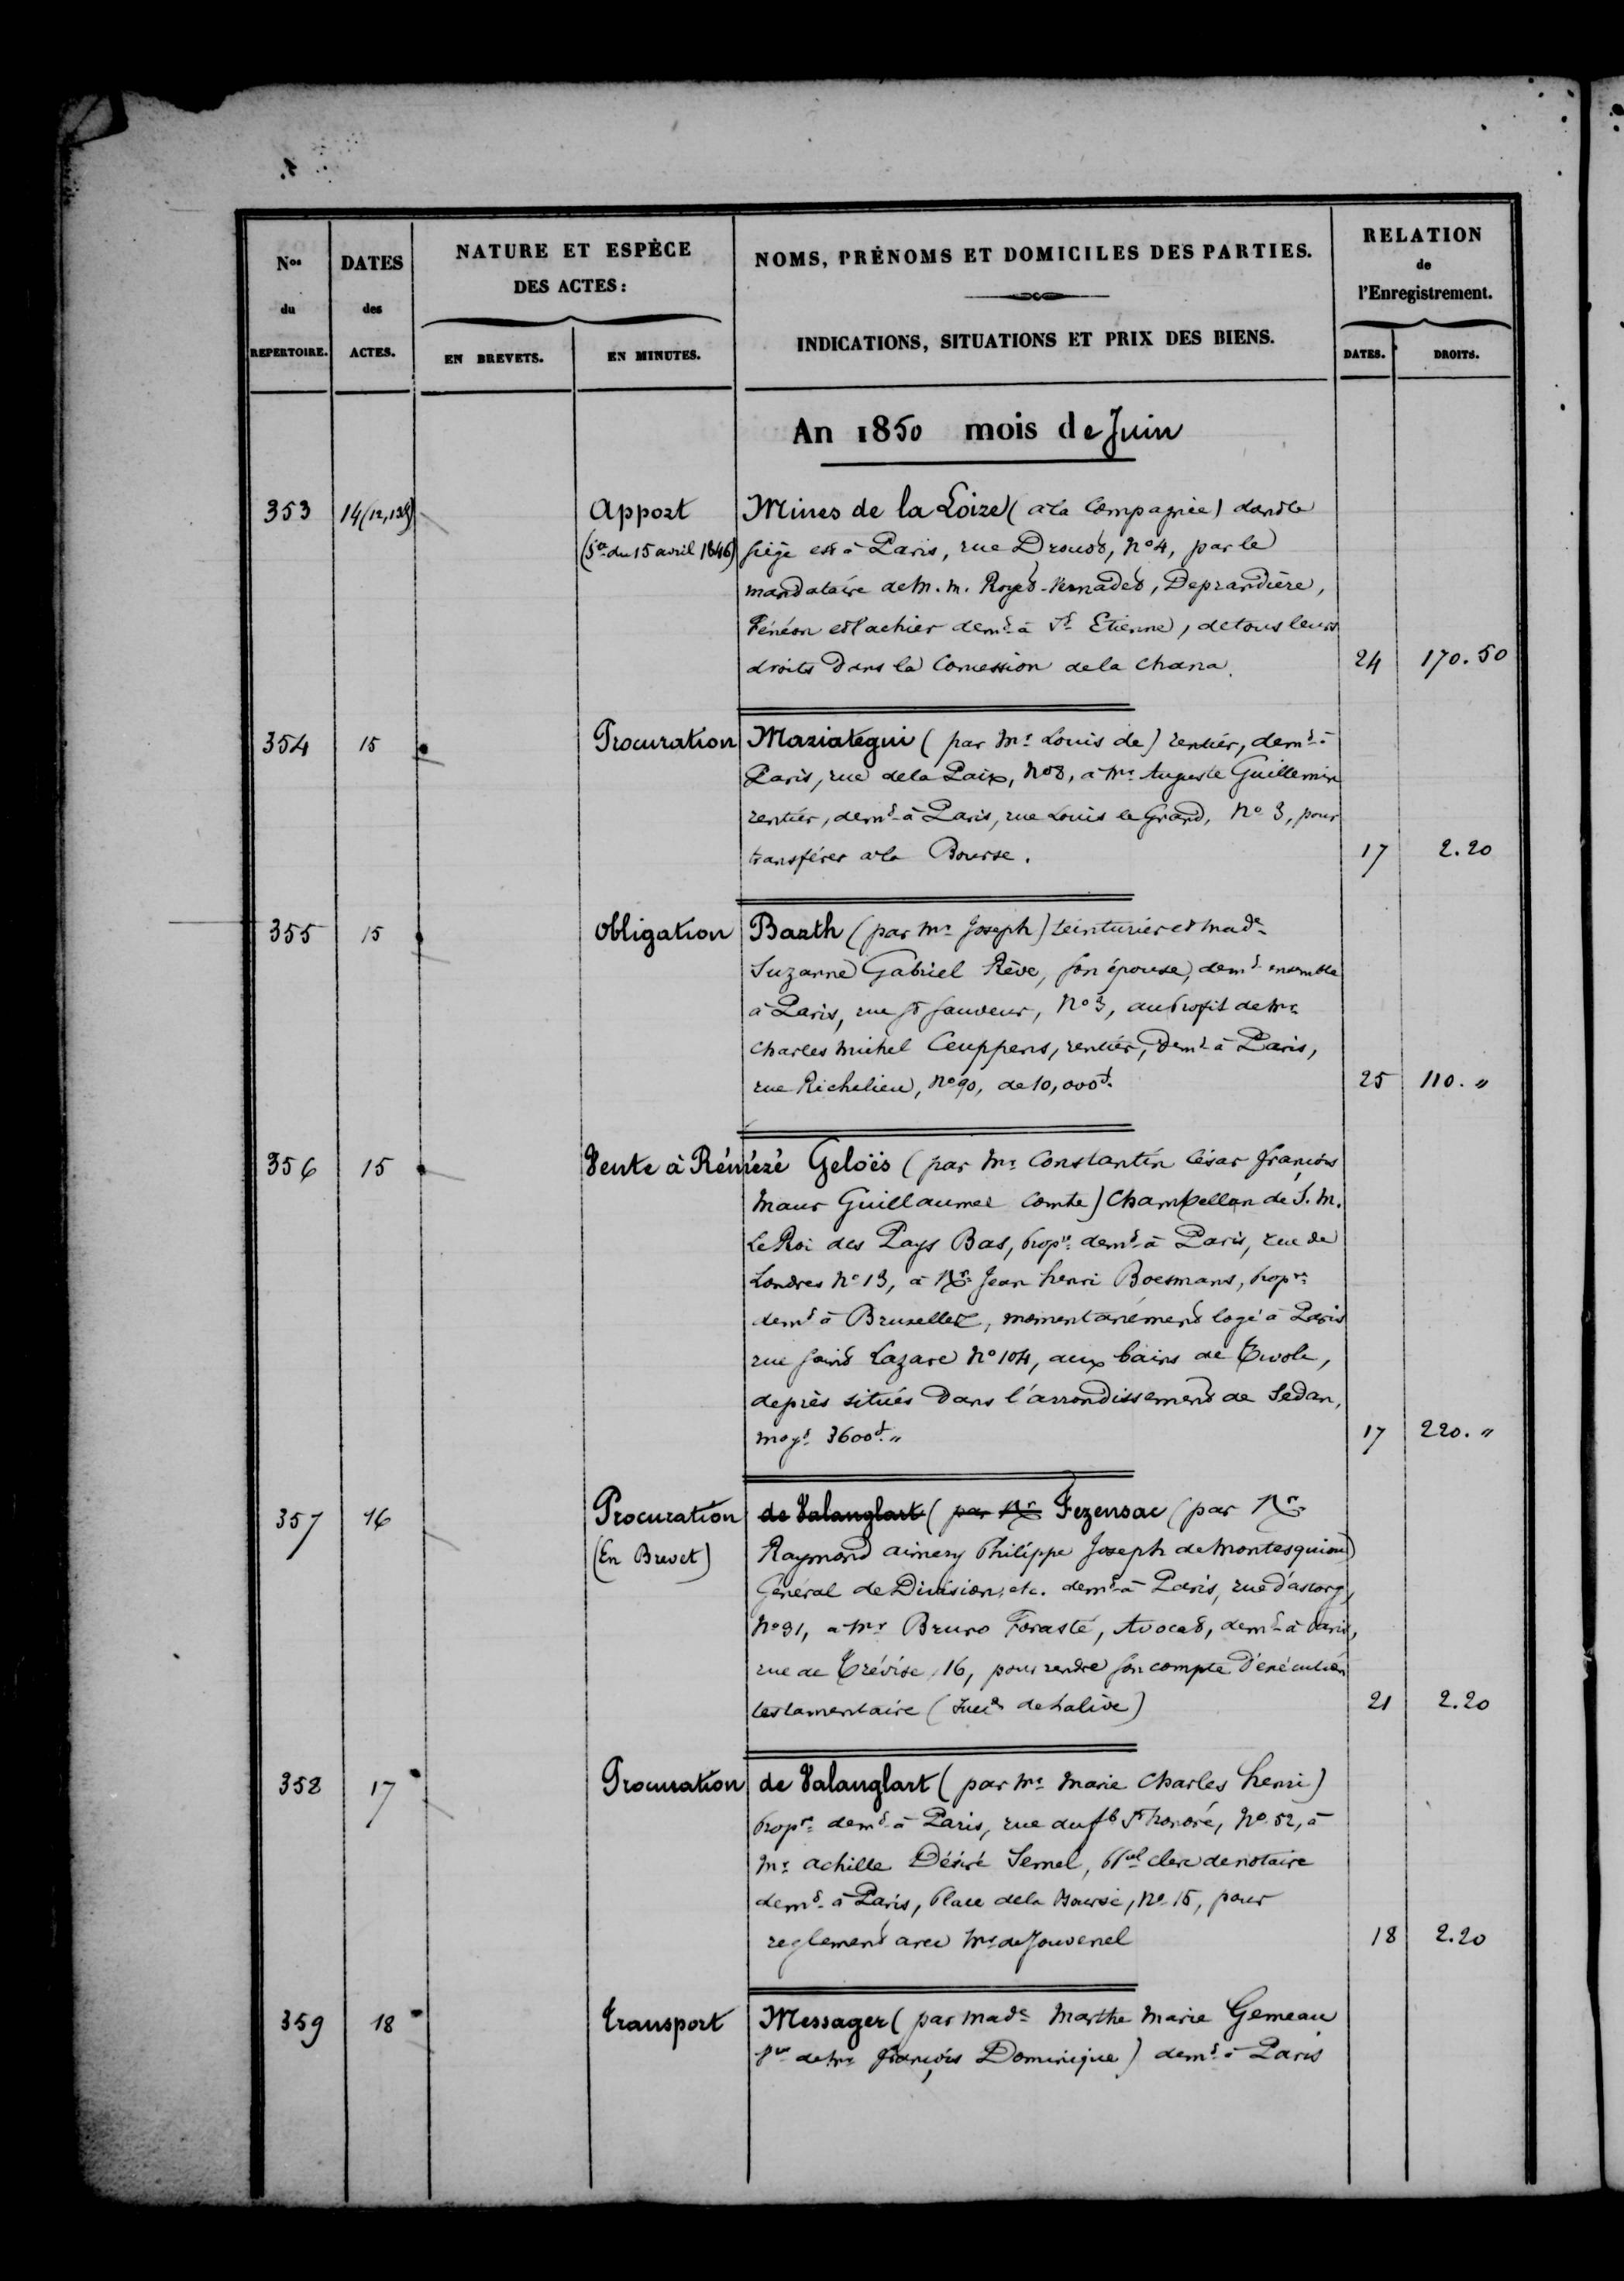 Nos
du
REPERTOIRE.
DATES
des
ACTES.
NATURE ET ESPÈCE
DES ACTES:
EN BREVETS.
EN MINUTES.
NOMS, PRÉNOMS ET DOMICILES DES PARTIES.
INDICATIONS, SITUATIONS ET PRIX DES BIENS.
RELATION
de
l'Enregistrement.
DATES.
DROITS.
An 1850 mois de Juin
353 14 (12, 13 Apport Mines de la Loire (à la Compagnie) dont le
du 15 avril 1846) siège est à Paris, rue Drouot, No 4, par le
mandataire de M. M. Royet-Vernadet, Deprandière,
Fénéon et Vachier demt à St Etienne, de tous leurs
droits dans la Concession de la Chana. 24 170.50
354 15 Procuration Mariategui (par Mr Louis de) rentier, demt à
Paris, rue de la Paix, No 8, à Mr Auguste Guillemin
rentier, demt à Paris, rue Louis le Grand, No 3, pour
transférer à la Bourse. 17 2.20
355 15 Obligation Barth (par Mr Joseph) teinturier et Made
Suzanne Gabriel Rève, son épouse, demt ensemble
à Paris, rue St Sauveur, No 3, au profit de Mr
Charles Michel Ceuppens, rentier, demt à Paris,
rue Richelieu, No 90, de 10,000f. 25 110. "
356 15 Vente à Réméré Geloës (par Mr Constantin César François
Maur Guillaume comte) Chambellan de S. M.
Le Roi des Pays Bas, propre demt à Paris, rue de
Londres No 13, à Mr Jean Henri Boesmans, propre
demt à Bruxelles, momentanément logé à Paris
rue Saint Lazare No 104, aux bains de Tivoli,
de près situés dans l'arrondissement de Sedan,
moyt 3600f. " 17 220. "
357 16 Procuration de Valanglart (par Mr Fezensac (par Mr
(En Brevet) Raymond Aimery Philippe Joseph de Montesquiou)
Général de Division, etc. demt à Paris, rue d'astorg,
No 31, à Mr Bruno Forasté, Avocat, demt à Paris,
rue de Trévise, 16, pour rendre son compte d'exécution
testamentaire (Succn de Lalive) 21 2.20
358 17 Procuration de Valanglart (par Mr Marie Charles Henri)
propre demt à Paris, rue du fb St honoré, No 52, à
Mr Achille Désiré Semel, pal clerc de notaire
demt à Paris, Place de la Bourse, No 15, pour
reglement avec Mr de Jouvenel 18 2.20
359 18 Transport Messager (par Made Marthe Marie Gemeau
Vve de Mr François Dominique) demt à Paris